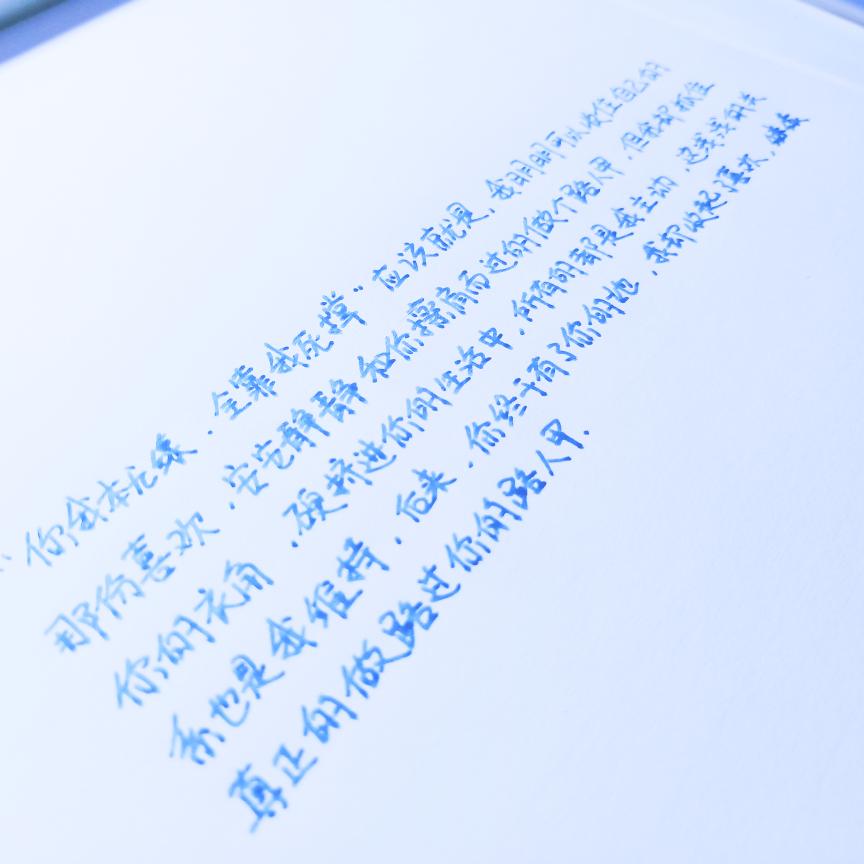 “你我本无缘,全靠我死撑”应该就是,我明明可以收住自己的
那份喜欢,安安静静和你擦肩而过的做个路人甲,但我却抓住
你的衣角,硬挤进你的生活中,所有的都是我主动,这浅浅的关
系也是我维持,后来,你终于有了你的她,我却收起喜欢,
真正的做路过你的路人甲.